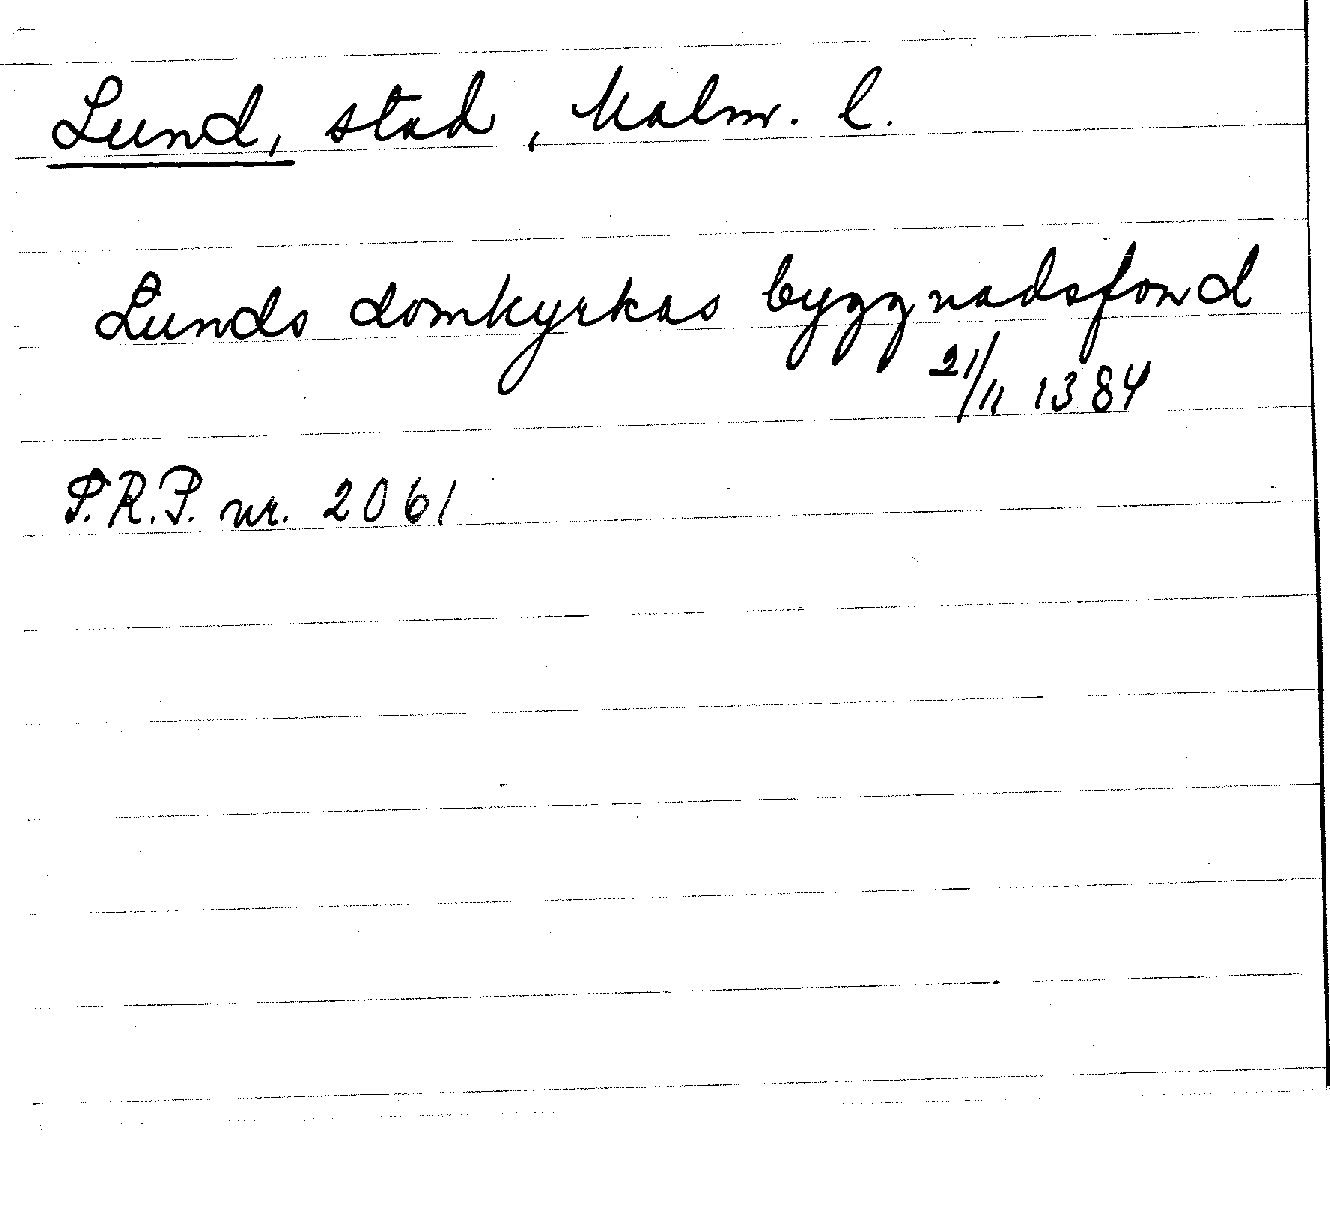 Lund, stad, Malm. l.
Lunds domkyrkas byggnadsfond
21/11 1384
P.R.P. nr. 2061